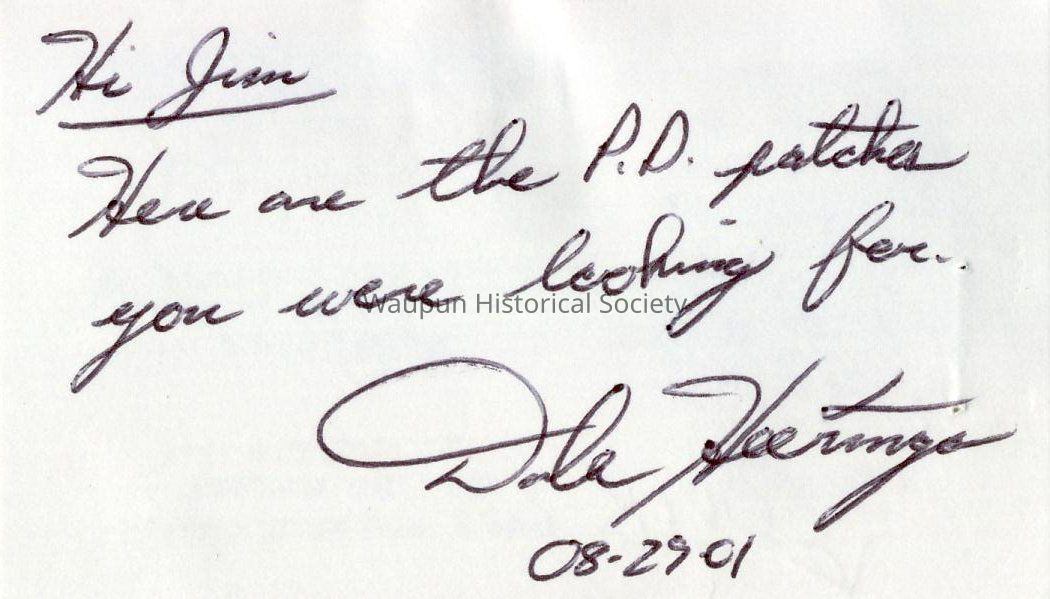 Hi Jim
Here are the P.D. patches
you were looking for.
Waupun Historical Society
Dale Heeringa
08-29-01